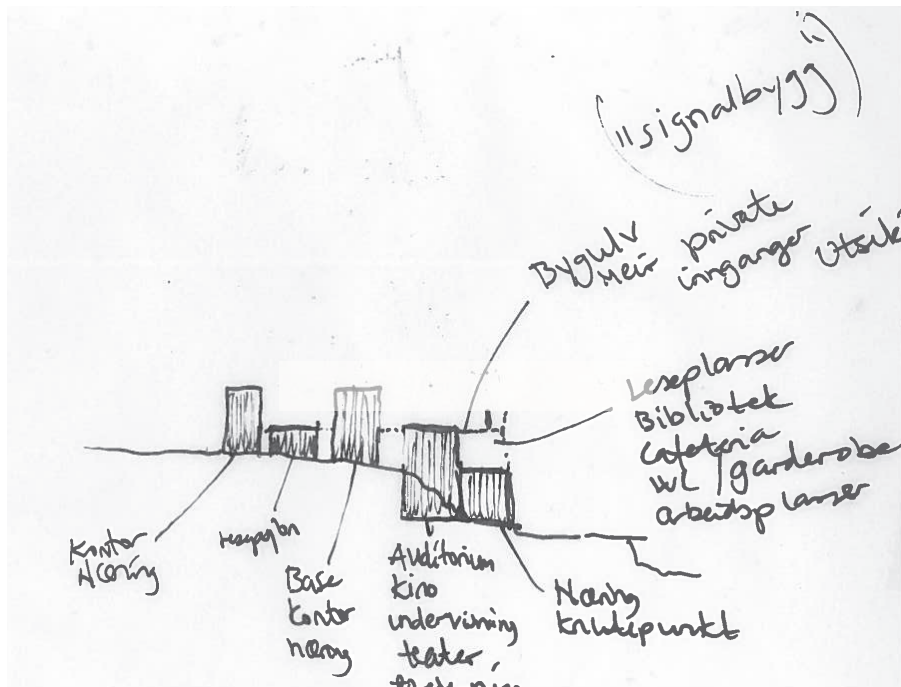 ("signalbygg")
Bygulv
Meir private
innganger
Utsik
Leseplasser
Bibliotek
Cafeteria
WC / garderobe
arbeidsplasser
Kontor
Næring
resepsjon
Base
Kontor
næring
Auditorium
kino
undervisning
teater,
Næring
knutepunkt